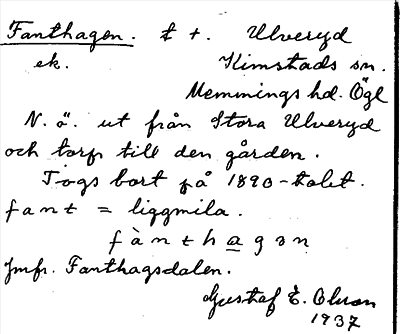 Fanthagen. t t. Ulveryd
ek. Kimstads sn.
Memmings hd. Ögl
N. ö. ut från Stora Ulveryd
och torp till den gården.
Togs bort på 1890-talet.
fant = liggmila.
fànthagən
Jmfr. Fanthagsdalen.
Gustaf E. Olsson
1937